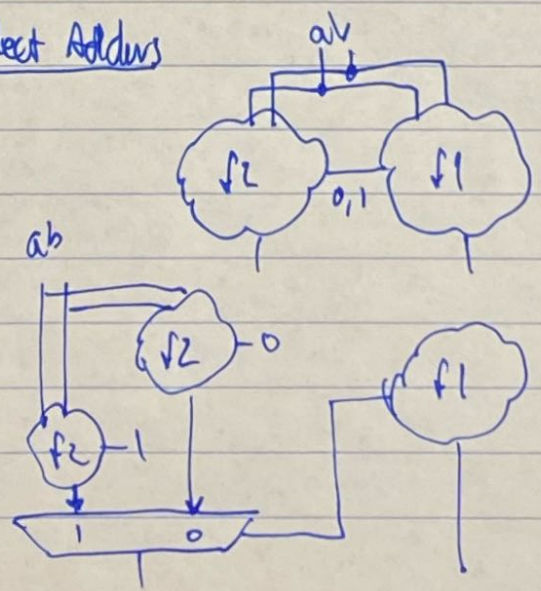 ect Adders
ab
f2
f1
0,1
ab
f2
0
f1
f2
1
1
0